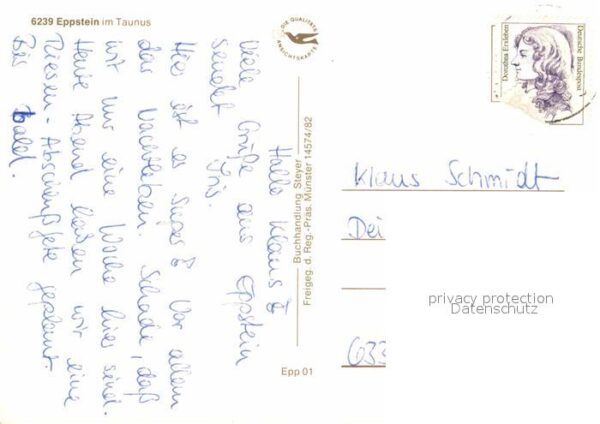 6239 Eppstein im Taunus
DIE QUALITÄTS
ANSICHTSKARTE
Hallo Klaus!
Viele Grüße aus Eppstein
sendet Iris.
Hier ist es super! Vor allem
das Nachtleben. Schade, daß
wir nur eine Woche hier sind.
Heute Abend haben wir eine
Riesen-Abschiedsfete geplant.
Bis bald.
Buchhandlung Steyer
Freigeg. d. Reg.-Präs. Münster 14574/82
Epp 01
Dorothea Erxleben
Deutsche Bundespost
Klaus Schmidt
Dei
633
privacy protection
Datenschutz